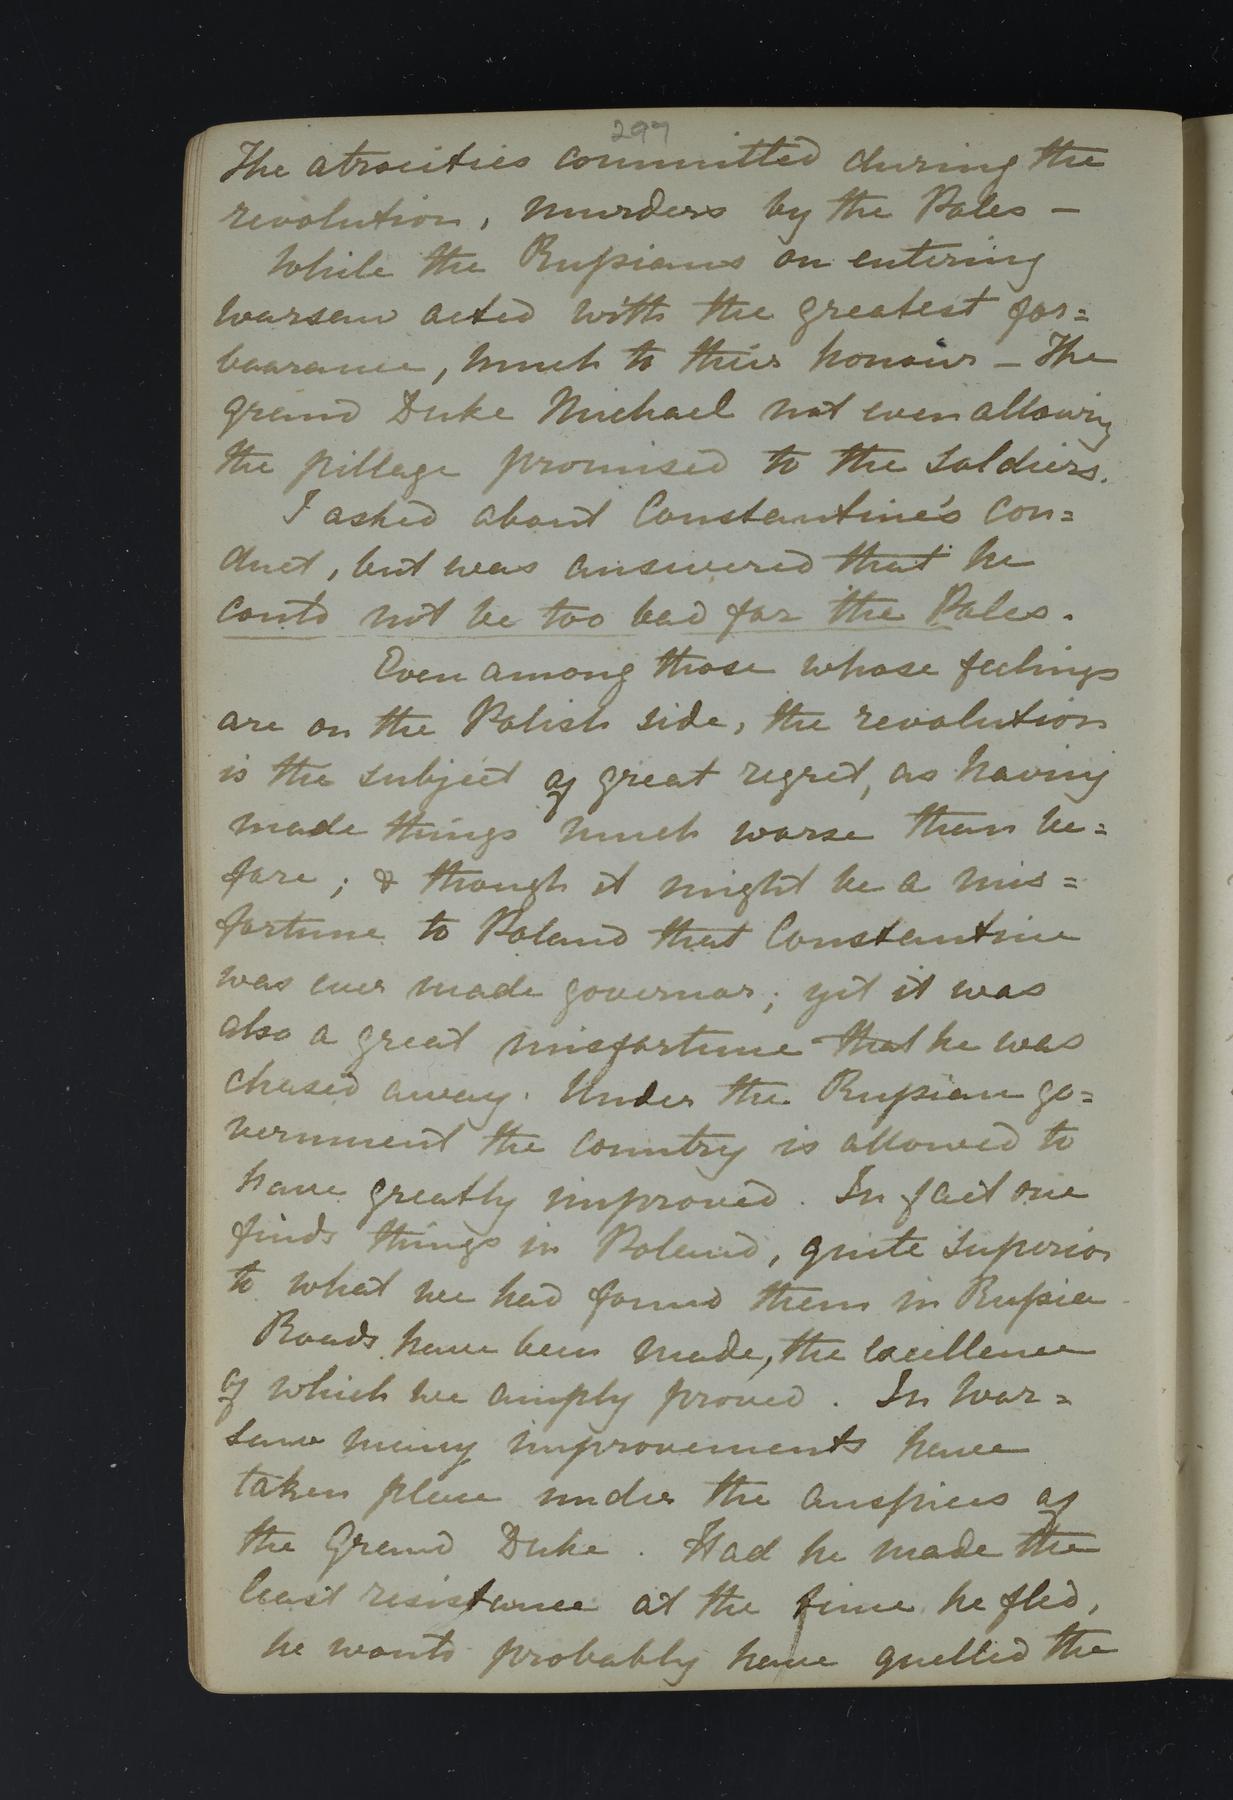 297
The atrocities committed during the
revolution, murders by the Poles –
While the Russians on entering
Warsaw acted with the greatest for=
baarance, much to their honour – The
grand Duke Michael not even allowing
the pillage promised to the soldiers.
I asked about Constantine's con=
duct, but was answered that he
could not be too bad for the Poles.
Even among those whose feelings
are on the Polish side, the revolution
is the subject of great regret, as having
made things much worse than be=
fore; & though it might be a mis=
fortune to Poland that Constantine
was ever made governor; yet it was
also a great misfortune that he was
chased away. Under the Russian go=
vernment the country is allowed to
have greatly improved. In fact one
finds things in Poland, quite superior
to what we had found them in Russia
Roads have been made, the excellence
of which we amply proved. In War=
saw many improvements have
taken place under the auspices of
the Grand Duke. Had he made the
least resistance at the time he fled,
he would probably have quelled the